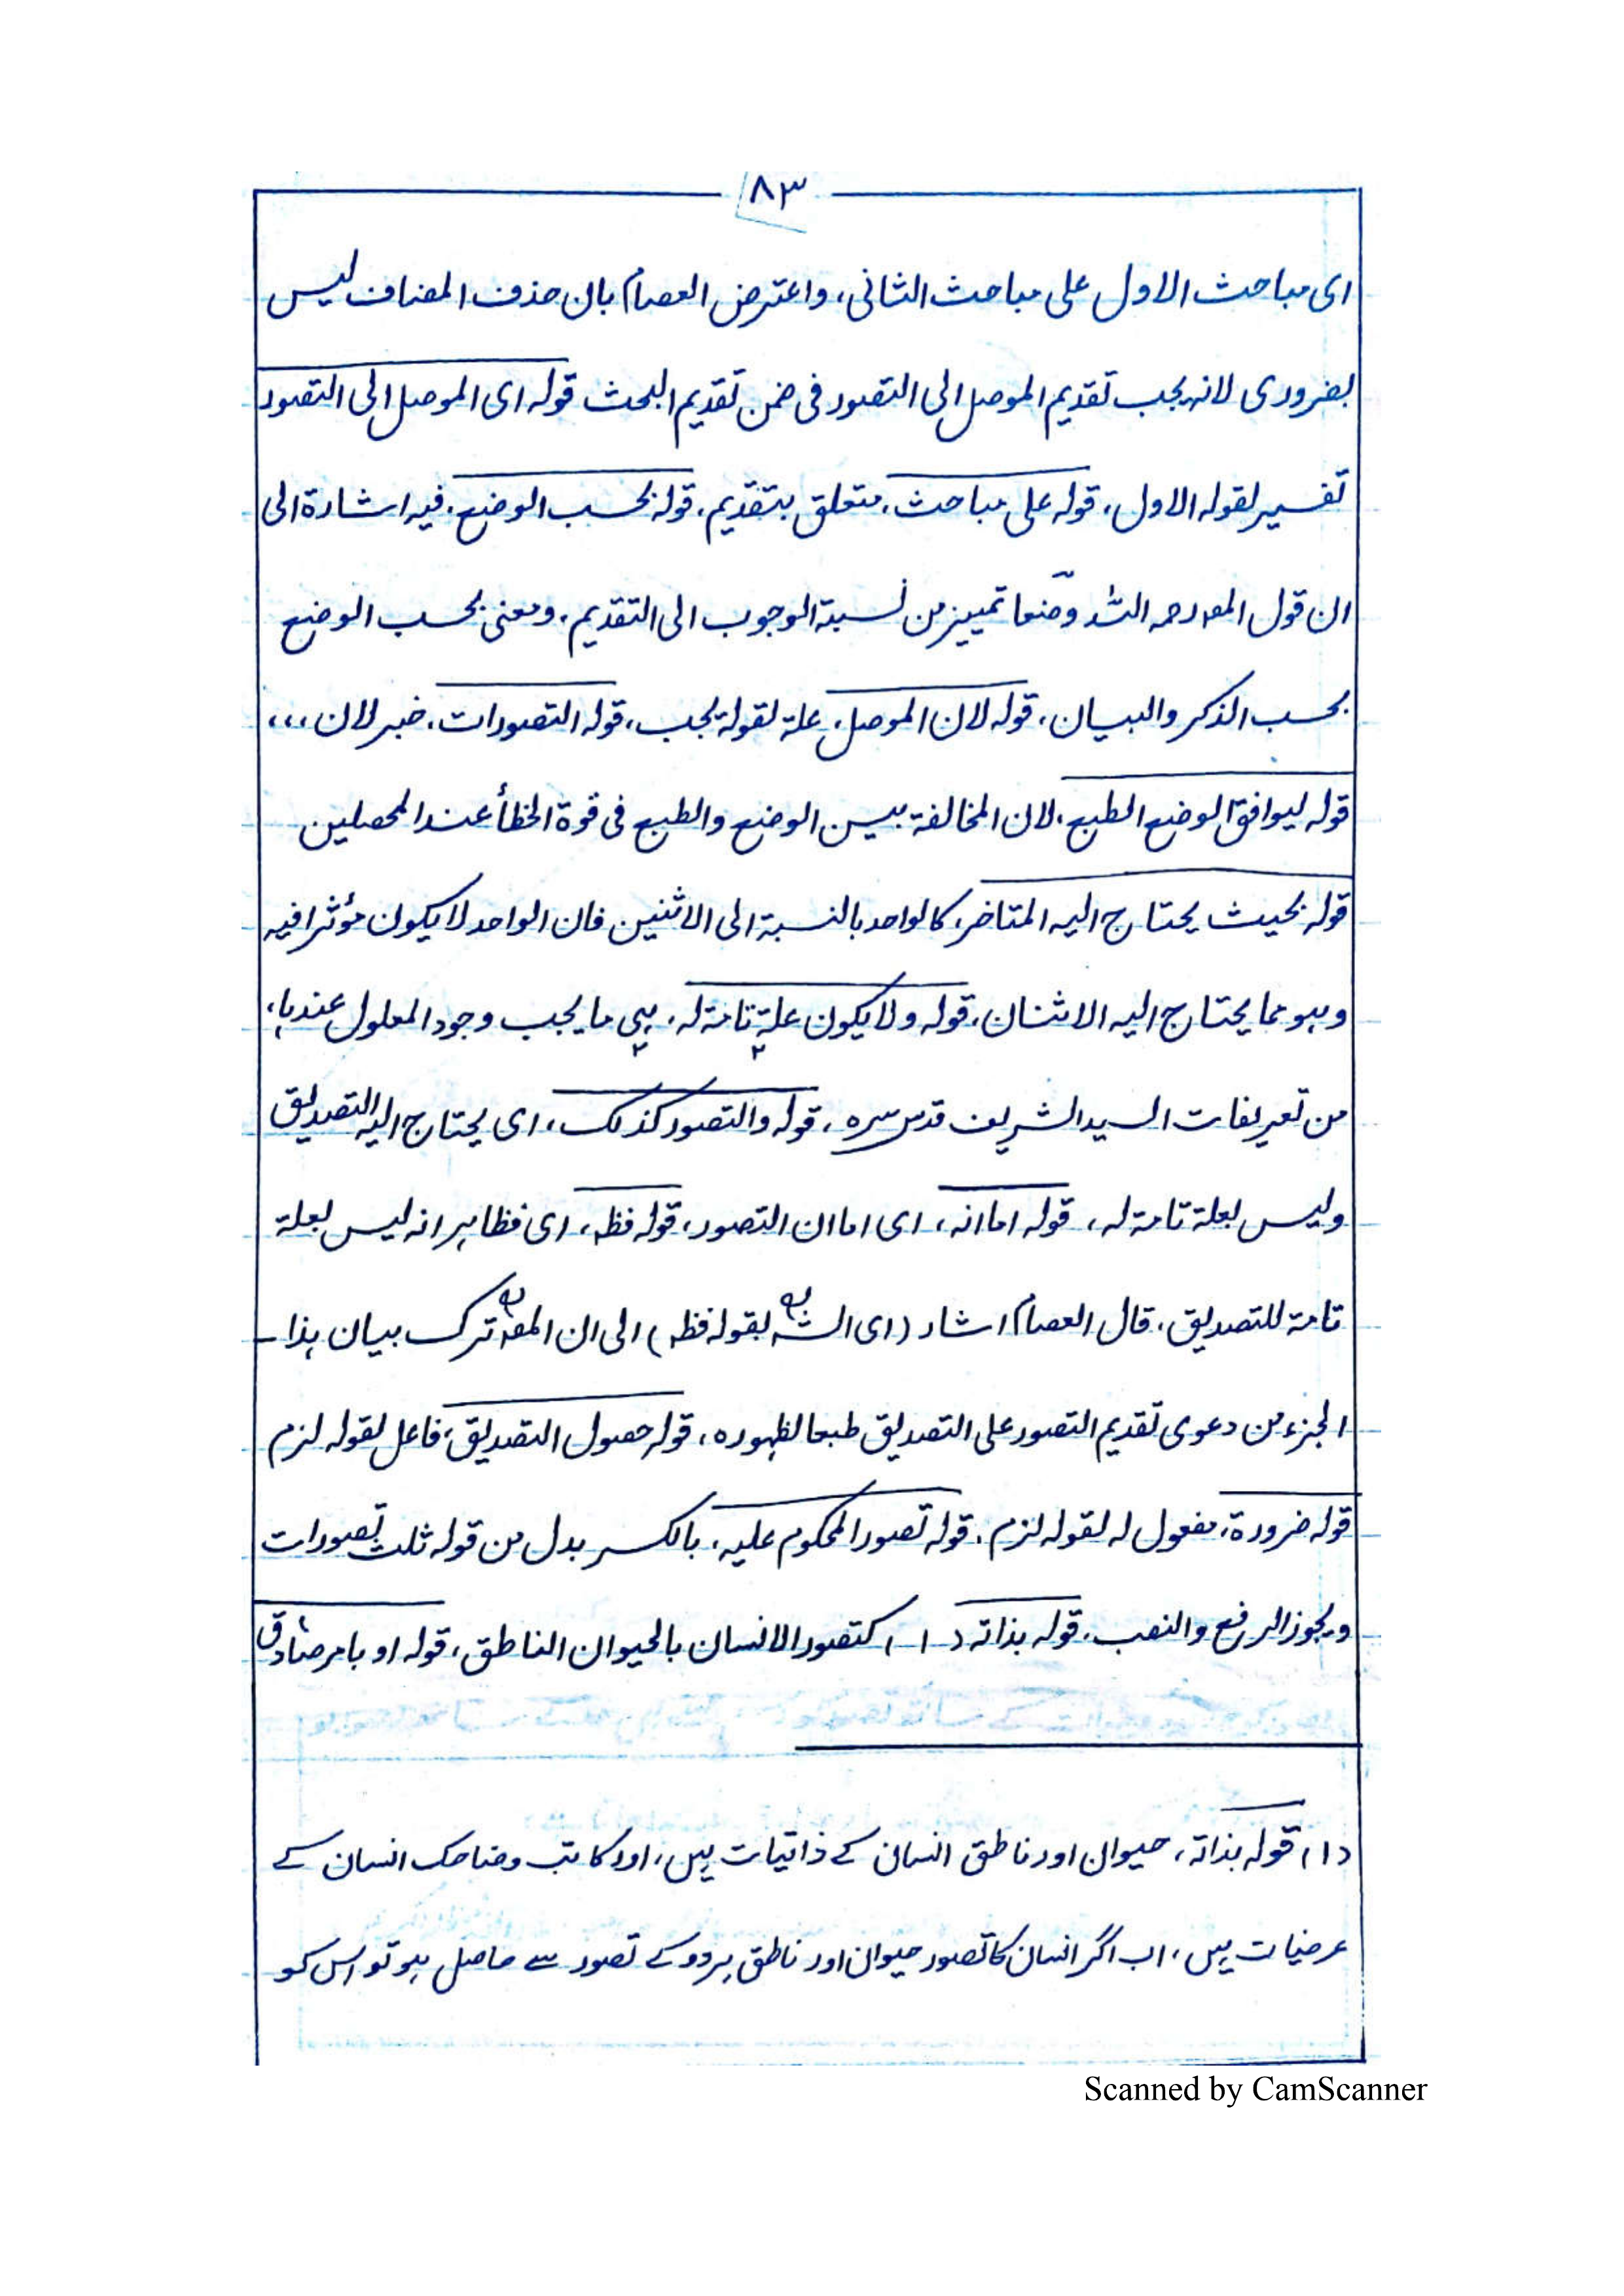 ٨٣
ای مباحث الاول علی مباحث الثانی، واعترض العصام بان حذف المضاف لیس
بضروری لانہ یجب تقدیم الموصل الی التصور فی ضمن تقدیم البحث قولہ ای الموصل الی التصور
تفسیر لقولہ الاول، قولہ علی مباحث، متعلق بتقدیم، قولہ بحسب الوضع، فیہ اشارۃ الی
ان قول المصؔ رحمہ اللہ وضعا تمییز من نسبۃ الوجوب الی التقدیم، ومعنی بحسب الوضع
بحسب الذکر والبیان، قولہ لان الموصل، علۃ لقولہ یجب، قولہ التصورات، خبر لان ،،،
قولہ لیوافق الوضع الطبع، لان المخالفۃ بیین الوضع والطبع فی قوۃ الخطأ عند المحصلین
قولہ بحیث یحتاج الیہ المتاخر، کالواحد بالنسبۃ الی الاثنین فان الواحد لا یکون مؤثرا فیہ
وہو مما یحتاج الیہ الاثنان، قولہ ولا یکون علۃ تامۃ لہ، ہی ما یجب وجود المعلول عندہا،
من تعریفات السید الشریف قدس سرہ، قولہ والتصور کذلک، ای یحتاج الیہ التصدیق
ولیس بعلۃ تامۃ لہ، قولہ اما انہ، ای اما ان التصور، قولہ فظہ، ای فظاہر انہ لیس بعلۃ
تامۃ للتصدیق، قال العصام اشار (ای الشہ بقولہ فظہ) الی ان المصؔ ترک بیان ہذا
الجزء من دعوی تقدیم التصور علی التصدیق طبعا لظہورہ، قولہ حصول التصدیق، فاعل لقولہ لزم
قولہ ضرورۃ، مفعول لہ لقولہ لزم، قولہ تصور المحکوم علیہ، بالکسر بدل من قولہ ثلث تصورات
ویجوز الرفع والنصب، قولہ بذاتہ (۱) کتصور الانسان بالحیوان الناطق، قولہ او بامر صادق
(۱) قولہ بذاتہ، حیوان اور ناطق انسان کے ذاتیات ہیں، اور کاتب وضاحک انسان کے
عرضیات ہیں، اب اگر انسان کا تصور حیوان اور ناطق ہردو کے تصور سے حاصل ہو تو اس کو
Scanned by CamScanner